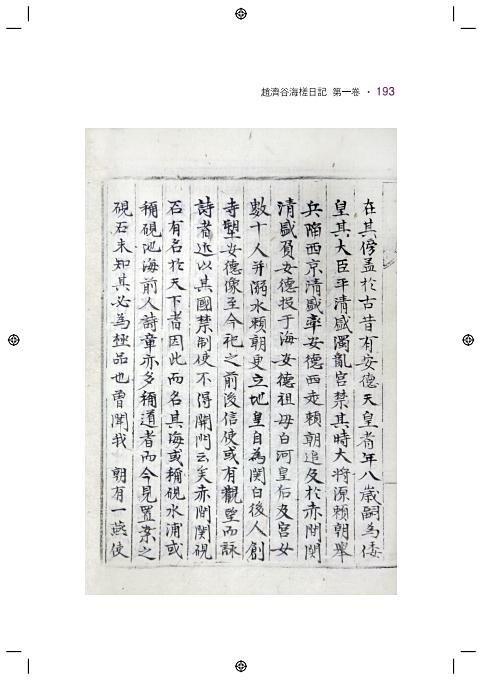 趙濟谷海槎日記 第一卷 · 193
在其傍盖於古昔有安德天皇者年八歲嗣為倭
皇其大臣平清盛濁亂宮禁其時大將源賴朝舉
兵陷西京清盛率安德西走賴朝追及於赤間関
清盛負安德投于海安德祖母白河皇后及宮女
數十人并溺水賴朝更立地皇自為関白後人創
寺塑安德像至今祀之前後信使或有觀望而詠
詩者近以其國禁制使不得開門云矣赤間関硯
石有名於天下者因此而名其海或稱硯水浦或
稱硯池海前人詩章亦多稱道者而今見置案之
硯石未知其必為極品也曾聞我 朝有一燕使